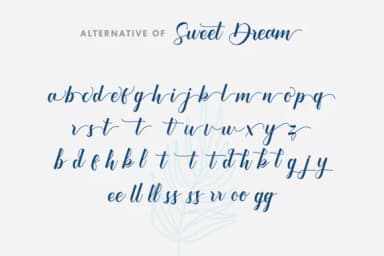 ALTERNATIVE OF Sweet Dream
a b c d e f g h i j k l m n o p q
r s t t t u v w x y z
b d f h k l t t t d h k l g j y
ee ll ll ss ss rr oo gg